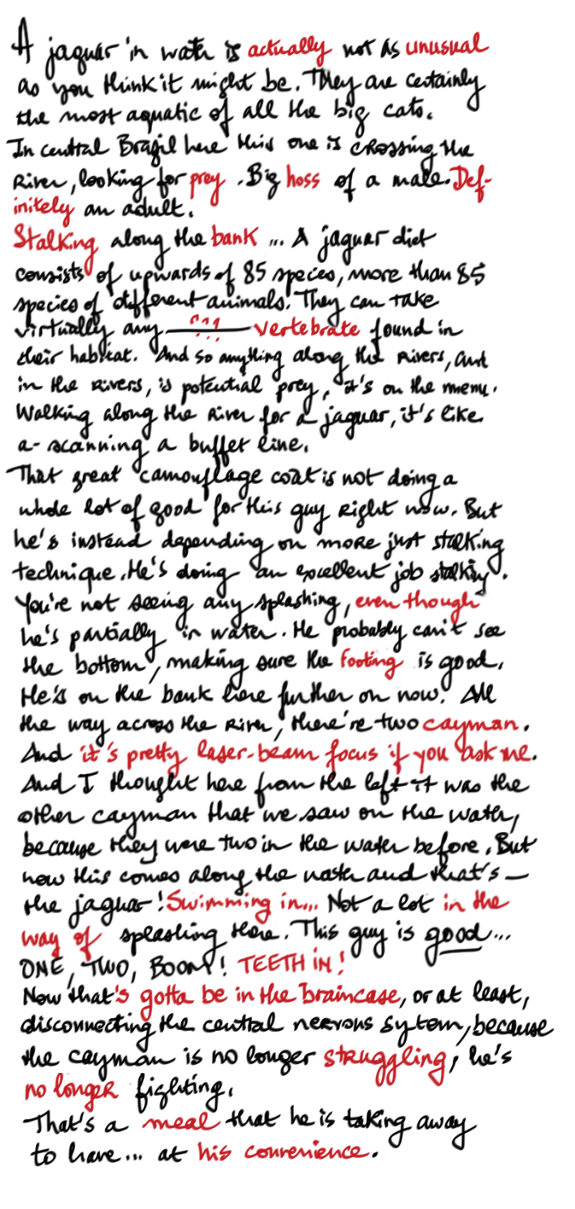 A jaguar in water is actually not as unusual
as you think it might be. They are certainly
the most aquatic of all the big cats.
In central Brazil here this one is crossing the
River, looking for prey. Big hoss of a male. Def-
initely an adult.
Stalking along the bank ... A jaguar diet
consists of upwards of 85 species, more than 85
species of different animals. They can take
virtually any ??? vertebrate found in
their habitat. And so anything along the rivers, and
in the rivers, is potential prey, it's on the menu.
Walking along the River for a jaguar, it's like
a- scanning a buffet line.
That great camouflage coat is not doing a
whole lot of good for this guy right now. But
he's instead depending on more just stalking
technique. He's doing an excellent job stalking.
You're not seeing any splashing, even though
he's partially in water. He probably can't see
the bottom, making sure the footing is good.
He's on the bank here further on now. All
the way across the River, there're two cayman.
And it's pretty laser-beam focus if you ask me.
And I thought here from the left it was the
other cayman that we saw on the water,
because they were two in the water before. But
now this comes along the water and that's –
the jaguar! Swimming in... Not a lot in the
way of splashing there. This guy is good...
ONE, TWO, BOOM! TEETH IN!
Now that's gotta be in the braincase, or at least,
disconnecting the central nervous sytem, because
the cayman is no longer struggling, he's
no longer fighting.
That's a meal that he is taking away
to have... at his convenience.